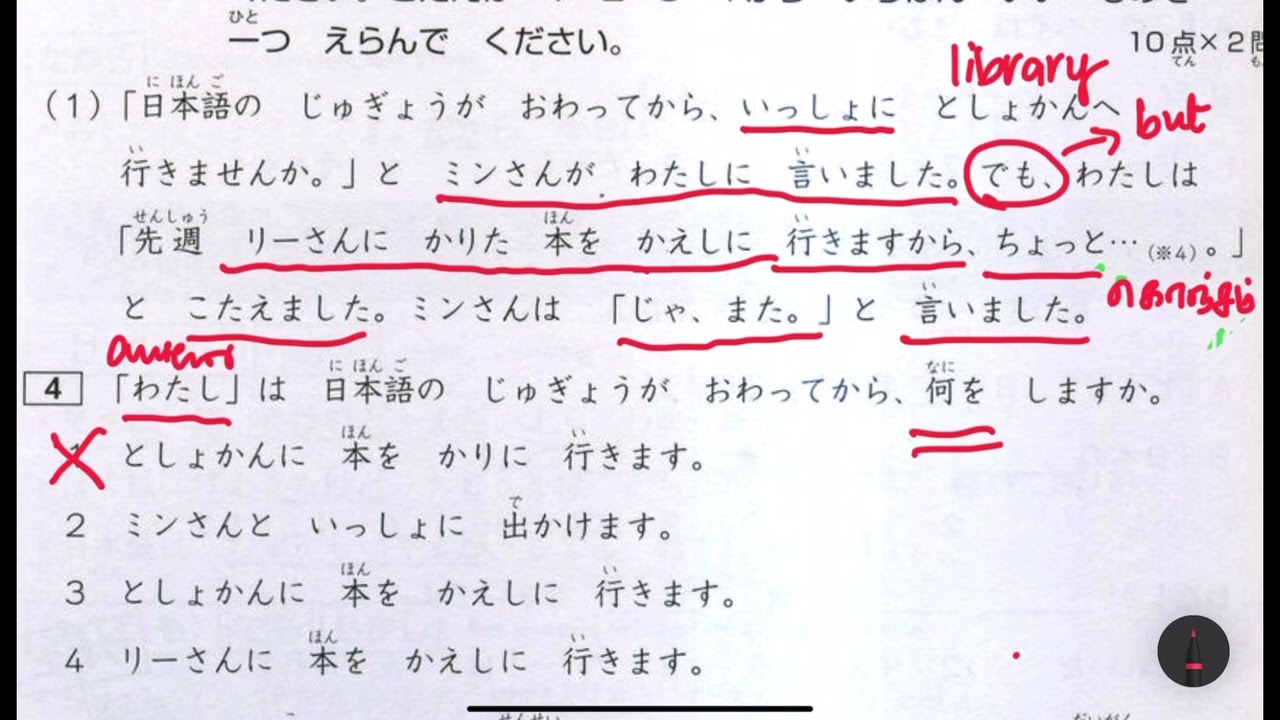 一つ えらんで ください。
10点×2
library
(1)「日本語の じゅぎょうが おわってから、いっしょに としょかんへ
but
行きませんか。」と ミンさんが わたしに 言いました。でも、わたしは
「先週 リーさんに かりた 本を かえしに 行きますから、ちょっと…(※4)。」
と こたえました。ミンさんは 「じゃ、また。」と 言いました。
4 「わたし」は 日本語の じゅぎょうが おわってから、何を しますか。
1 としょかんに 本を かりに 行きます。
2 ミンさんと いっしょに 出かけます。
3 としょかんに 本を かえしに 行きます。
4 リーさんに 本を かえしに 行きます。